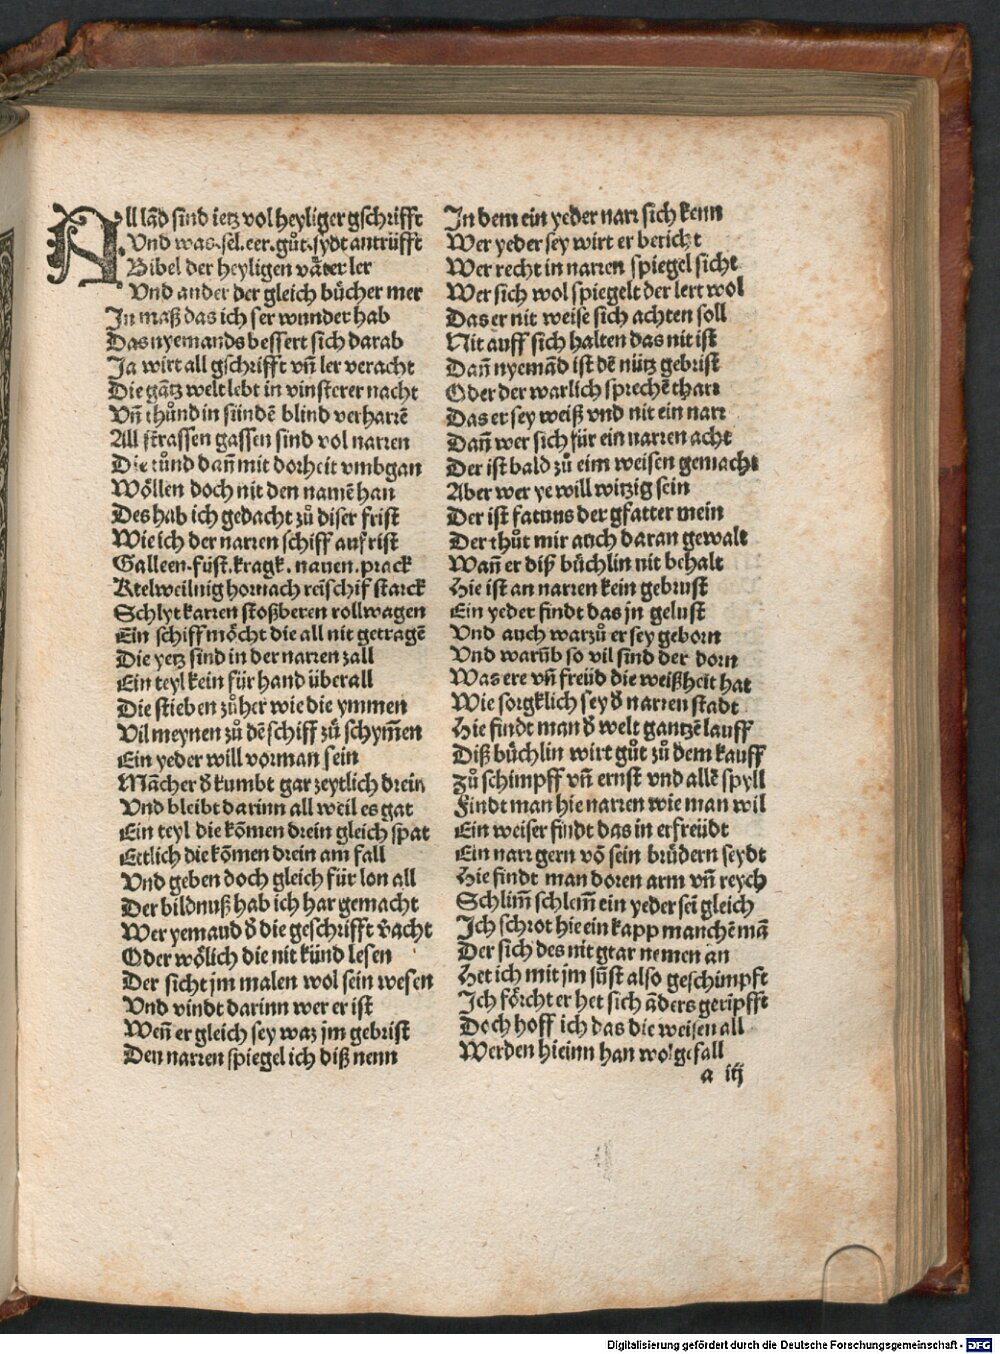 All lãd sind ietz vol heyliger gschrifft
Vnd was sel. eer. gůt. sydt antrüfft
Bibel der heyligen väter ler
Vnd ander der gleich bücher mer
In maß das ich ser wunder hab
Das nyemands bessert sich darab
Ja wirt all gschrifft vñ ler veracht
Die gãtz welt lebt in vinsterer nacht
Vñ thůnd in sündẽ blind verharrẽ
All strassen gassen sind vol narren
Die tůnd dañ mit dorheit vmbgan
Wöllen doch nit den namẽ han
Des hab ich gedacht zů diser frist
Wie ich der narren schiff auf rist
Galleen. füst. kragk. nauen. prack
Ktelweilnig hornach reischif starck
Schlyt karren stoßberen rollwagen
Ein schiff möcht die all nit getragẽ
Die yetz sind in der narren zall
Ein teyl kein für hand überall
Die stieben zůher wie die ymmen
Vil meynen zů dẽ schiff zů schym̃en
Ein yeder will vorman sein
Mãcher d kumbt gar zeytlich drein
Vnd bleibt darinn all weil es gat
Ein teyl die kõmen drein gleich spat
Ettlich die kõmen drein am fall
Vnd geben doch gleich für lon all
Der bildnuß hab ich har gemacht
Wer yemand d die geschrifft v̄acht
Oder wölich die nit künd lesen
Der sicht jm malen wol sein wesen
Vnd vindt darinn wer er ist
Weñ er gleich sey waz jm gebrist
Den narren spiegel ich diß nenn
In dem ein yeder narr sich kenn
Wer yeder sey wirt er bericht
Wer recht in narren spiegel sicht
Wer sich wol spiegelt der lert wol
Das er nit weise sich achten soll
Nit auff sich halten das nit ist
Dañ nyemãd ist dẽ nütz gebrist
Oder der warlich sprechẽ tharr
Das er sey weiß vnd nit ein narr
Dañ wer sich für ein narren acht
Der ist bald zů eim weisen gemacht
Aber wer ye will witzig sein
Der ist fatuus der gfatter mein
Der thůt mir auch daran gewalt
Wañ er diß büchlin nit behalt
Hie ist an narren kein gebrust
Ein yeder findt das jn gelust
Vnd auch warzů er sey geborn
Vnd warũb so vil sind der dorn
Was ere vñ freüd die weißheit hat
Wie sorgklich sey d narren stadt
Hie findt man d welt gantzẽ lauff
Diß büchlin wirt gůt zů dem kauff
Zů schimpff vñ ernst vnd allẽ spyll
Findt man hie narren wie man wil
Ein weiser findt das in erfreüdt
Ein narr gern võ sein brüdern seydt
Hie findt man doren arm vñ reych
Schlim̃ schlem̃ ein yeder sei gleich
Ich schrot hie ein kapp manchẽ mã
Der sich des nit gtar nemen an
Het ich mit jm sũst also geschimpft
Ich förcht er het sich ãders geripfft
Doch hoff ich das die weisen all
Werden hieinn han wolgefall
a iij
Digitalisierung gefördert durch die Deutsche Forschungsgemeinschaft - DFG